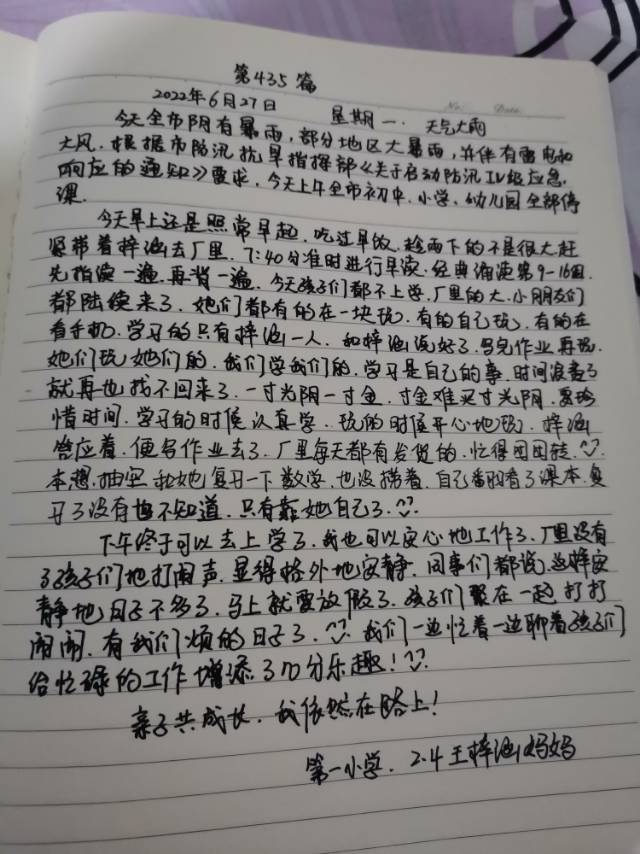 第435篇
No: Date:
2022年6月27日 星期一. 天气大雨
今天全市阴有暴雨,部分地区大暴雨,并伴有雷电和
大风.根据市防汛抗旱指挥部《关于启动防汛IV级应急
响应的通知》要求.今天上午全市初中.小学.幼儿园全部停
课.
今天早上还是照常早起.吃过早饭.趁雨下的不是很大.赶
紧带着梓涵去厂里.7:40分准时进行早读.经典诵读第9-16回.
先指读一遍.再背一遍.今天孩子们都不上学.厂里的大.小朋友们
都陆续来了.她们都有的在一块玩.有的自己玩.有的在
看手机.学习的只有梓涵一人.和梓涵说好了.写完作业再玩.
她们玩她们的.我们学我们的.学习是自己的事.时间浪费了
就再也找不回来了.一寸光阴一寸金.寸金难买寸光阴.要珍
惜时间.学习的时候认真学.玩的时候开心地玩.梓涵
答应着.便写作业去了.厂里每天都有发货的.忙得团团转.
本想.抽空和她复习一下数学.也没捞着.自己翻看了课本.复
习了没有也不知道.只有靠她自己了.
下午终于可以去上学了.我也可以安心地工作了.厂里没有
了孩子们地打闹声.显得格外地安静.同事们都说.这样安
静地日子不多了.马上就要放假了.孩子们聚在一起打打
闹闹.有我们烦的日子了.我们一边忙着一边聊着孩子们
给忙碌的工作增添了几分乐趣!
亲子共成长.我依然在路上!
第一小学.2.4王梓涵妈妈